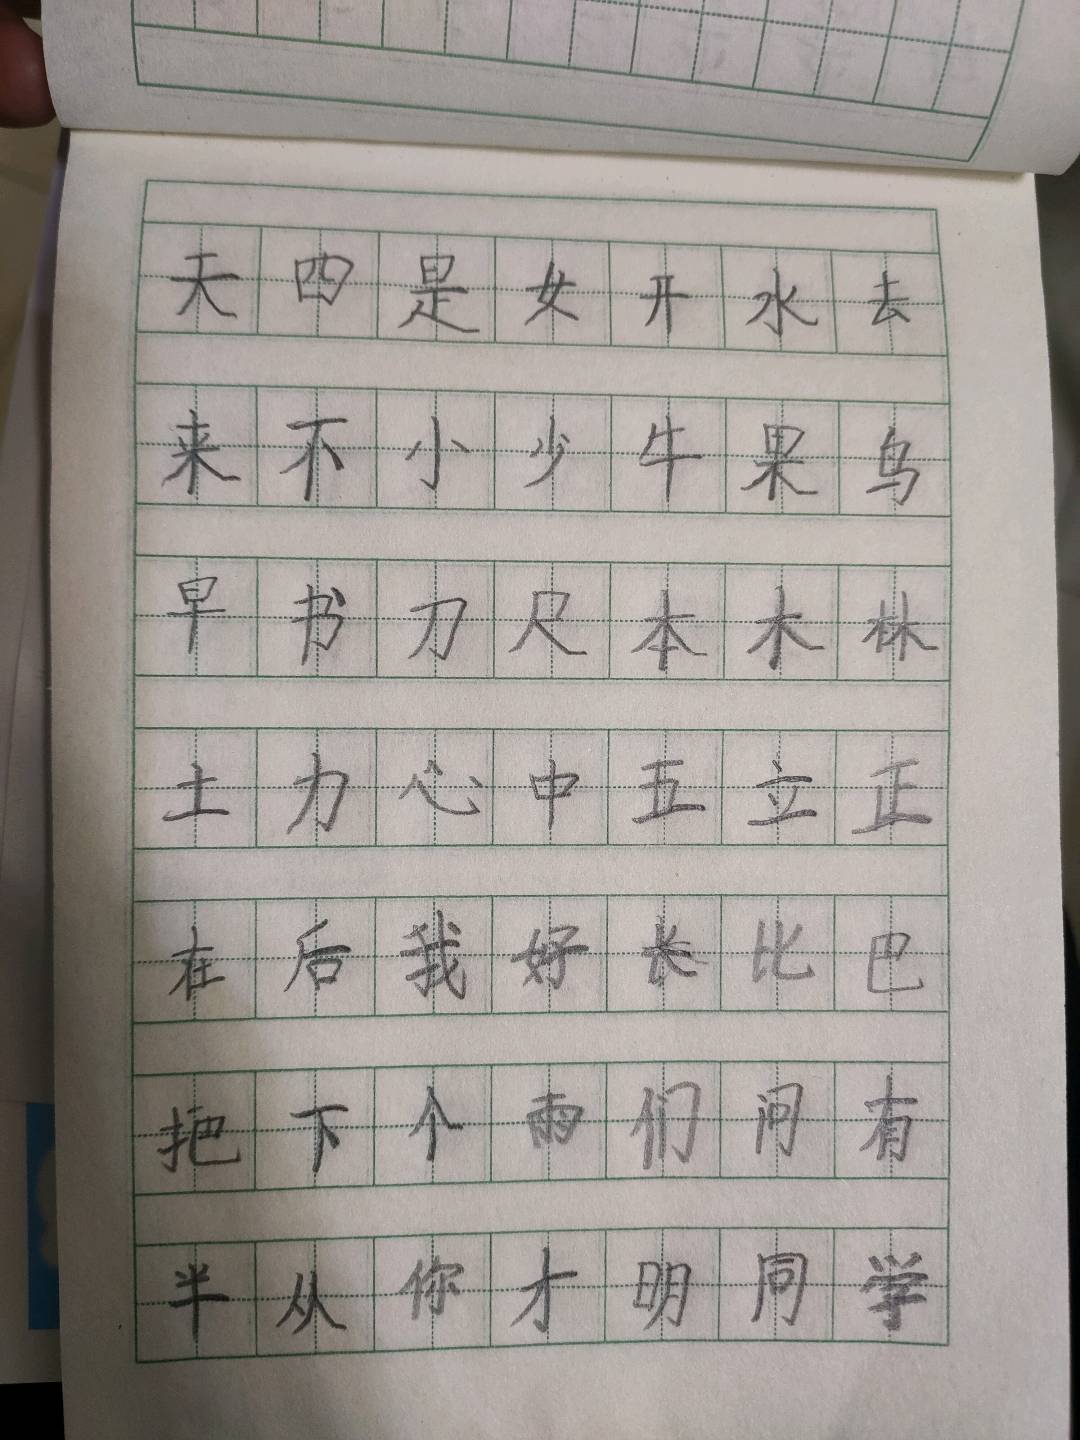 天四是女开水去
来不小少牛果鸟
早书刀尺本木林
土力心中五立正
在后我好长比巴
把下个雨们问有
半从你才明同学